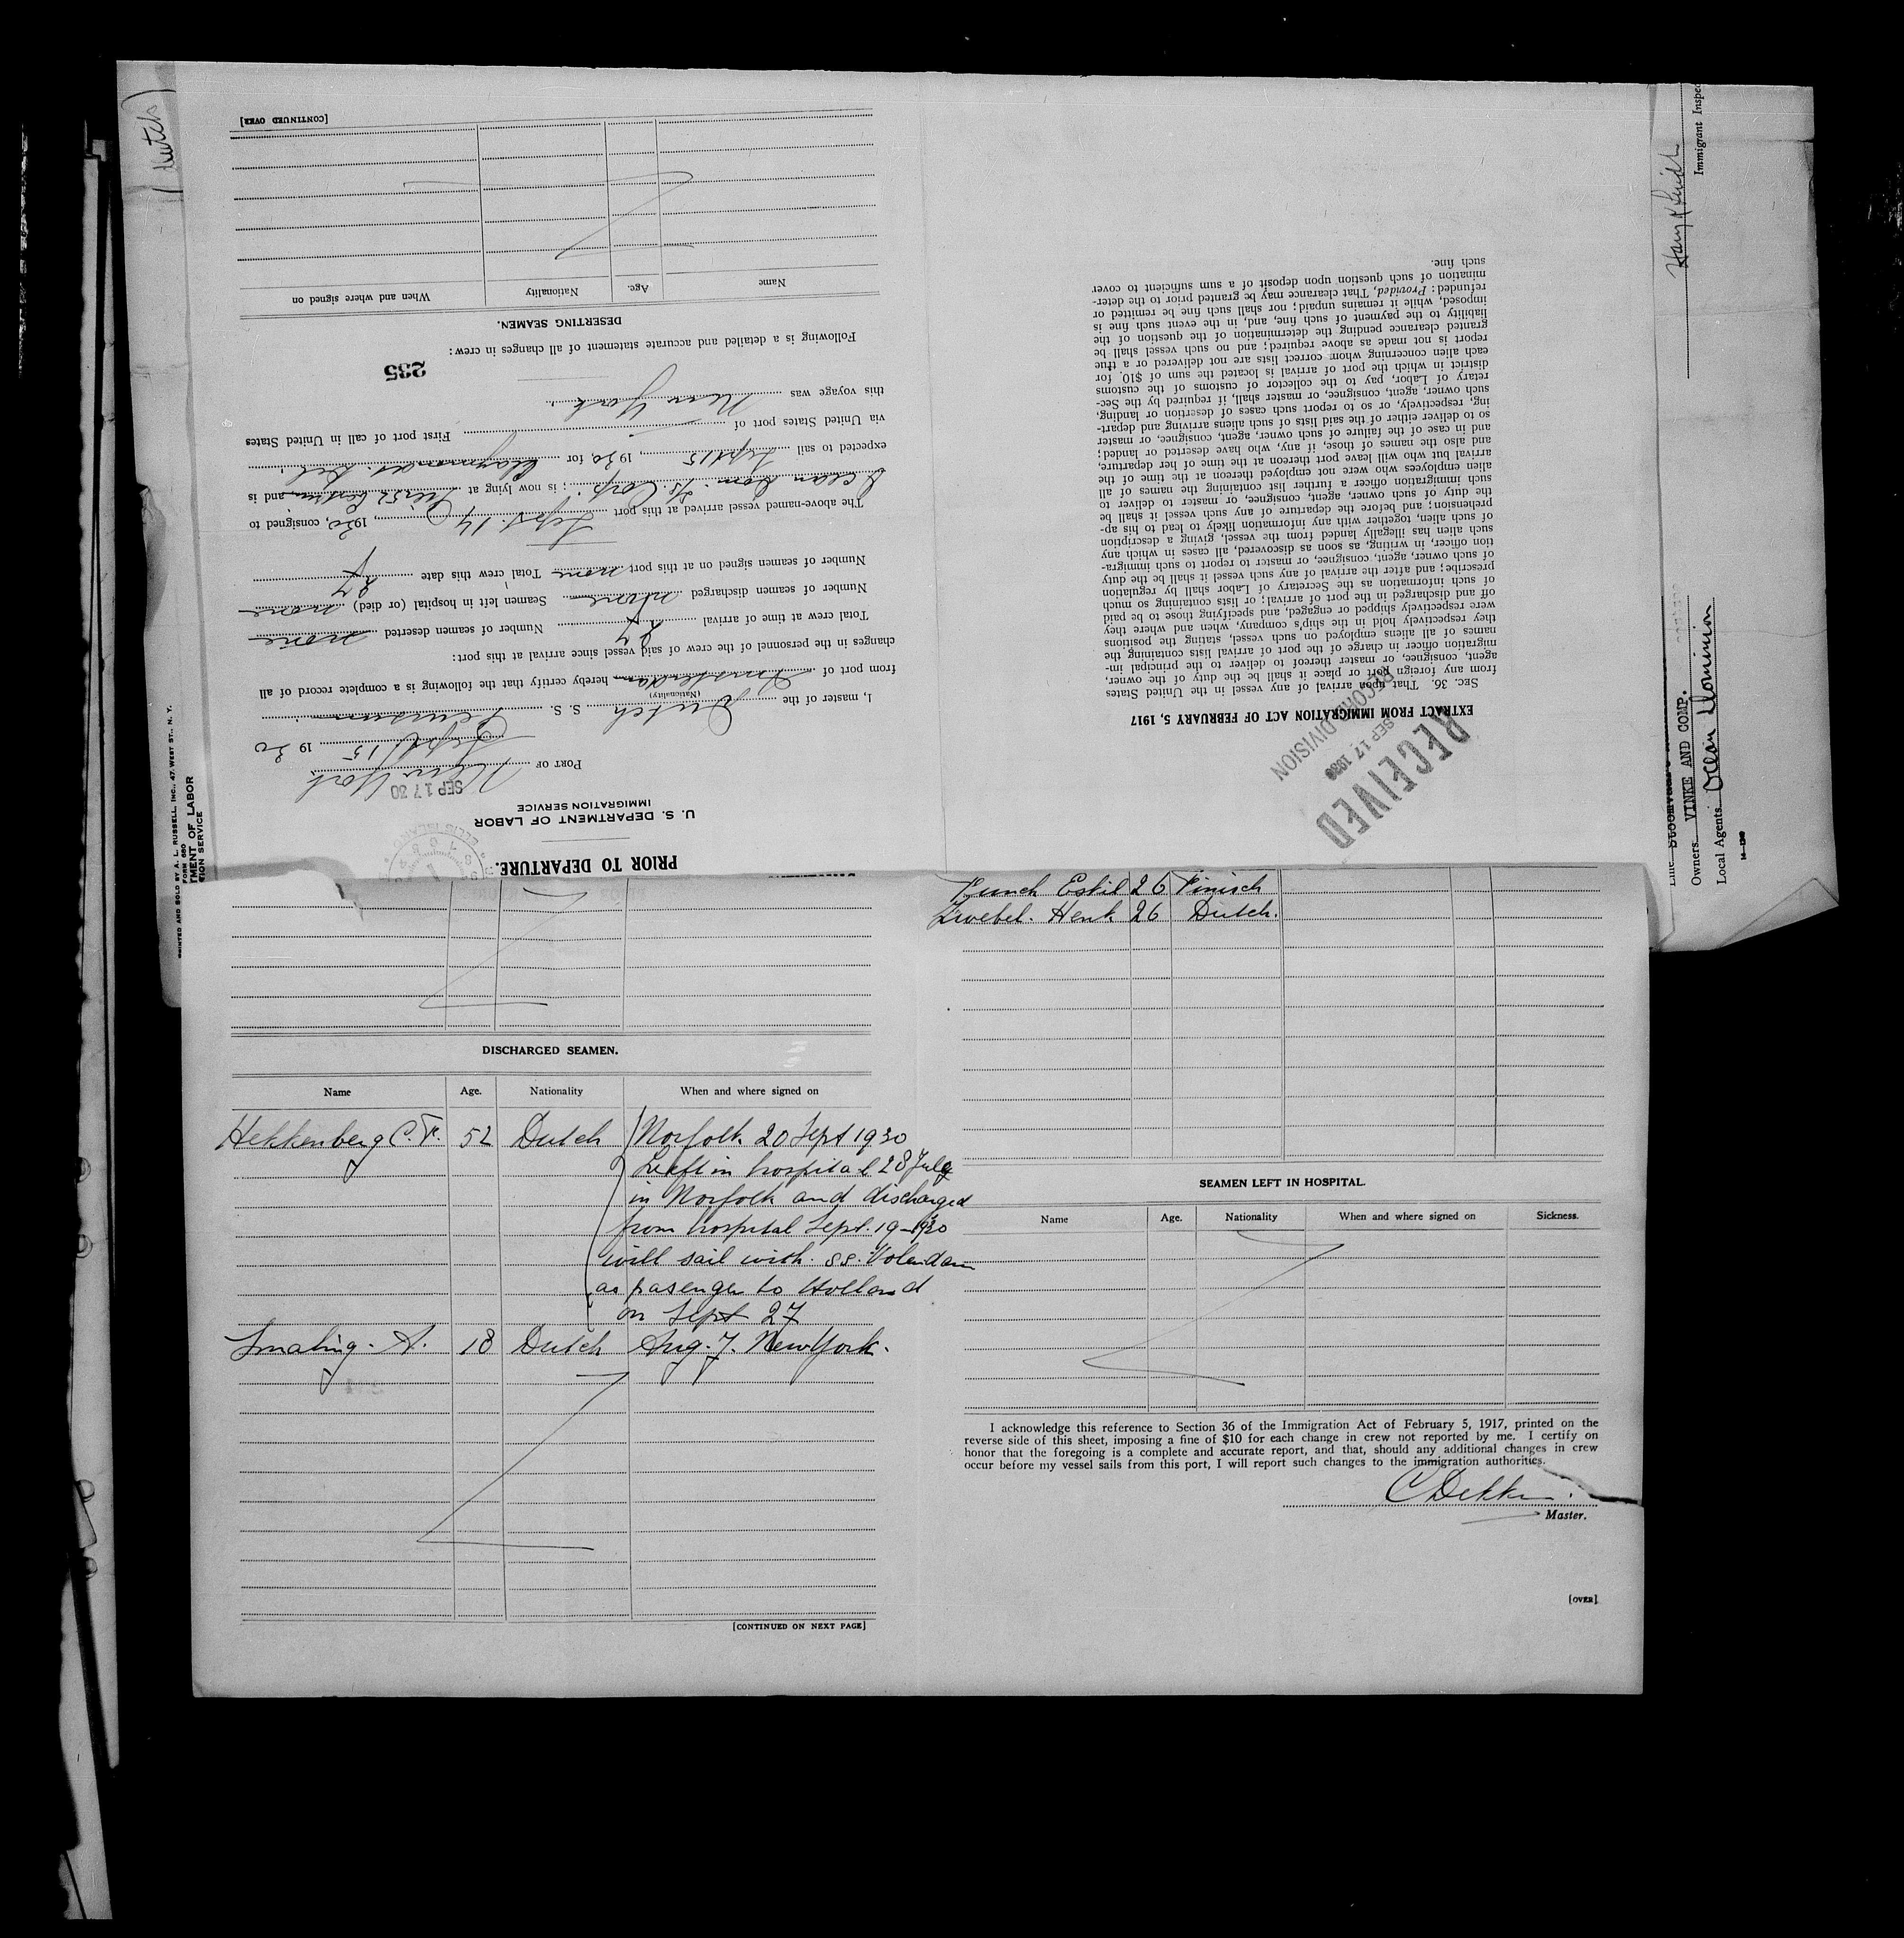 PRIOR TO DEPARTURE.
U. S. DEPARTMENT OF LABOR
IMMIGRATION SERVICE
SEP 17 30
PORT OF New York
Sept 15 1930
I, master of the Dutch S. S.
(Nationality)
from port of Amsterdam hereby certify that the following is a complete record of all
changes in the personnel of the crew of said vessel since arrival at this port:
Total crew at time of arrival 27 Number of seamen deserted none
Number of seamen discharged None Seamen left in hospital (or died) none
Number of seamen signed on at this port none Total crew this date 27
The above-named vessel arrived at this port Sept. 14, 1930, consigned to
Ocean Dom. SS. Corp.; is now lying at Pier 52 and is
expected to sail Sept 15, 1930, for
via United States port of First port of call in United States
this voyage was New York.
235
Following is a detailed and accurate statement of all changes in crew:
DESERTING SEAMEN.
Name Age. Nationality When and where signed on
[CONTINUED OVER]
EXTRACT FROM IMMIGRATION ACT OF FEBRUARY 5, 1917
SEC. 36. That upon arrival of any vessel in the United States
from any foreign port or place it shall be the duty of the owner,
agent, consignee, or master thereof to deliver to the principal im-
migration officer in charge of the port of arrival lists containing the
names of all aliens employed on such vessel, stating the positions
they respectively hold in the ship's company, when and where they
were respectively shipped or engaged, and specifying those to be paid
off and discharged in the port of arrival; or lists containing so much
of such information as the Secretary of Labor shall by regulation
prescribe; and after the arrival of any such vessel it shall be the duty
of such owner, agent, consignee, or master to report to such immigra-
tion officer, in writing, as soon as discovered, all cases in which any
such alien has illegally landed from the vessel, giving a description
of such alien, together with any information likely to lead to his ap-
prehension; and before the departure of any such vessel it shall be
the duty of such owner, agent, consignee, or master to deliver to
such immigration officer a further list containing the names of all
alien employees who were not employed thereon at the time of the
arrival but who will leave port thereon at the time of her departure,
and also the names of those, if any, who have deserted or landed;
and in case of the failure of such owner, agent, consignee, or master
so to deliver either of the said lists of such aliens arriving and depart-
ing, respectively, or so to report such cases of desertion or landing,
such owner, agent, consignee, or master, shall, if required by the Sec-
retary of Labor, pay to the collector of customs of the customs
district in which the port of arrival is located the sum of $10. for
each alien concerning whom correct lists are not delivered or a true
report is not made as above required; and no such vessel shall be
granted clearance pending the determination of the question of the
liability to the payment of such fine, and, in the event such fine is
imposed, while it remains unpaid; nor shall such fine be remitted or
refunded: Provided, That clearance may be granted prior to the deter-
mination of such question upon deposit of a sum sufficient to cover
such fine.
RECEIVED
SEP 17 1930
RECORD DIVISION
(Dutch)
PRINTED AND SOLD BY A. L. RUSSELL, INC., 47 WEST ST., N. Y.
FORM 680
TMENT OF LABOR
TION SERVICE
Immigrant Inspec
Owners VINKE AND COMP.
Local Agents Ocean Dominion
DISCHARGED SEAMEN.
Name Age. Nationality When and where signed on
Hekkenberg C. 52 Dutch Norfolk 20 Sept 1930
Left in hospital 28 July
in Norfolk and discharged
from hospital Sept. 19-1930
will sail with ss. Volendam
as pasenger to Holland
on Sept 27
Smaling. A. 18 Dutch Aug. 7. New York.
[CONTINUED ON NEXT PAGE]
Eskil 26 Finisch
Henk 26 Dutch.
SEAMEN LEFT IN HOSPITAL.
Name Age. Nationality When and where signed on Sickness.
I acknowledge this reference to Section 36 of the Immigration Act of February 5, 1917, printed on the
reverse side of this sheet, imposing a fine of $10 for each change in crew not reported by me. I certify on
honor that the foregoing is a complete and accurate report, and that, should any additional changes in crew
occur before my vessel sails from this port, I will report such changes to the immigration authorities.
C Dekker.
Master.
[OVER]